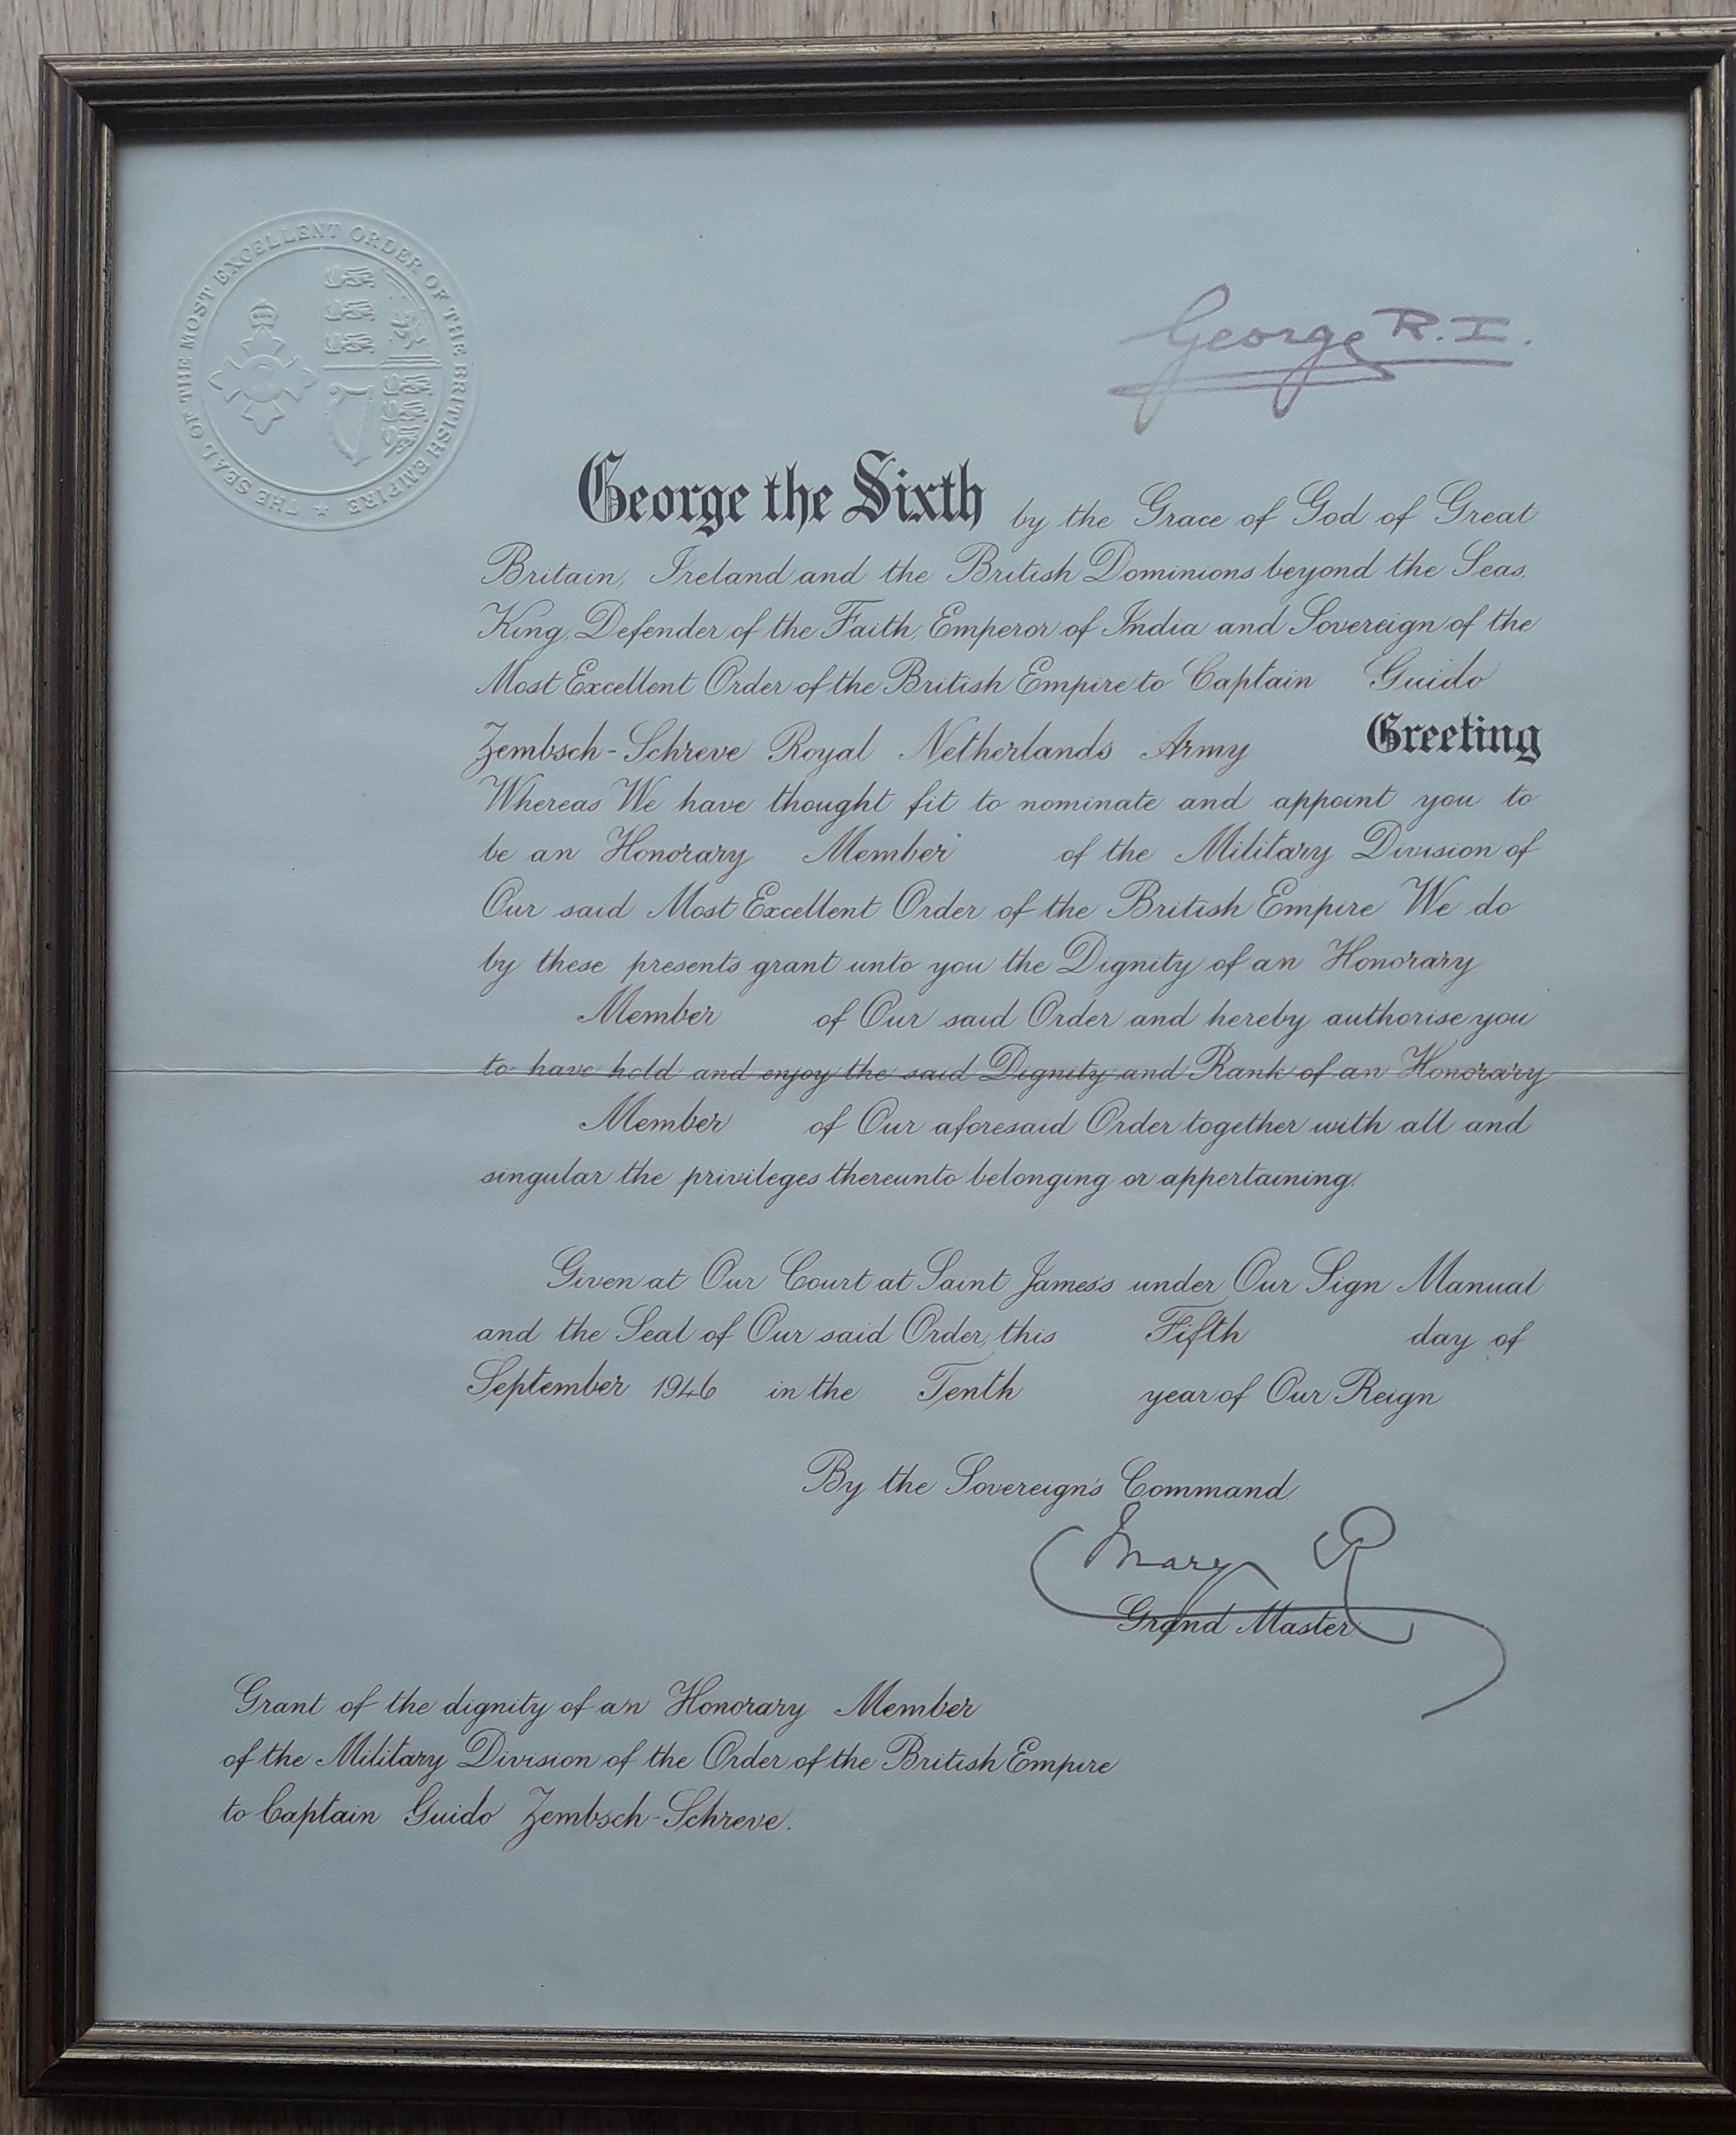 THE SEAL OF THE MOST EXCELLENT ORDER OF THE BRITISH EMPIRE
George R.I.
George the Sixth by the Grace of God of Great
Britain, Ireland and the British Dominions beyond the Seas,
King, Defender of the Faith, Emperor of India and Sovereign of the
Most Excellent Order of the British Empire to Captain Guido
Zembsch-Schreve Royal Netherlands Army Greeting
Whereas We have thought fit to nominate and appoint you to
be an Honorary Member of the Military Division of
Our said Most Excellent Order of the British Empire We do
by these presents grant unto you the Dignity of an Honorary
Member of Our said Order and hereby authorise you
to have hold and enjoy the said Dignity and Rank of an Honorary
Member of Our aforesaid Order together with all and
singular the privileges thereunto belonging or appertaining.
Given at Our Court at Saint James's under Our Sign Manual
and the Seal of Our said Order, this Fifth day of
September 1946 in the Tenth year of Our Reign
By the Sovereign's Command.
Mary R
Grand Master
Grant of the dignity of an Honorary Member
of the Military Division of the Order of the British Empire
to Captain Guido Zembsch-Schreve.